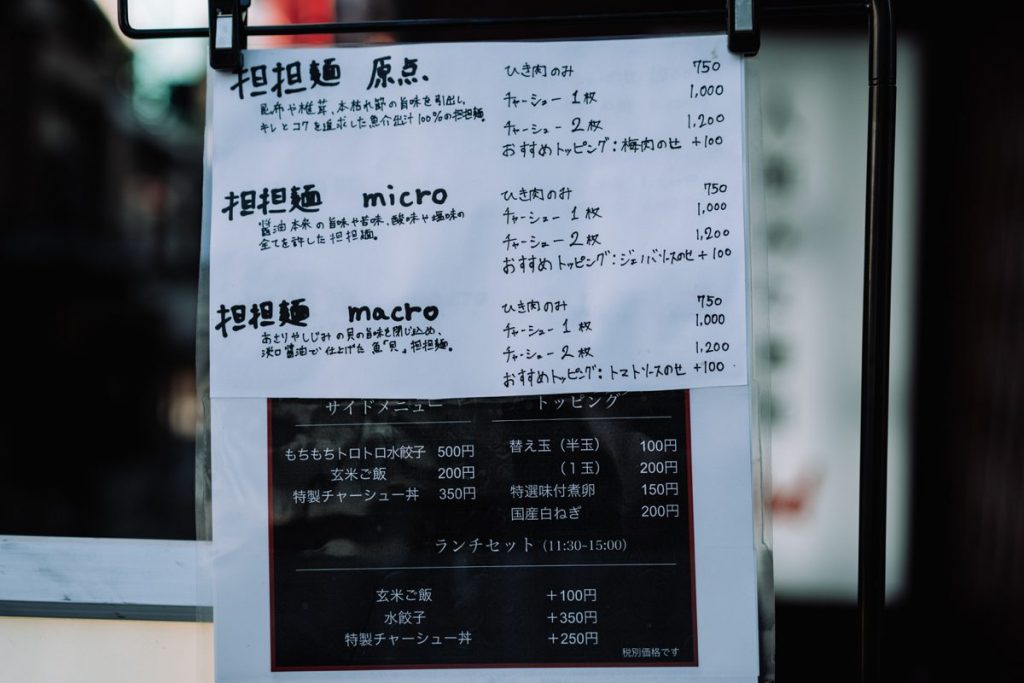 担担麺 原点
昆布や椎茸、本枯れ節の旨味を引出し、
キレとコクを追求した魚介出汁100%の担担麺。
ひき肉のみ 750
チャーシュー 1枚 1,000
チャーシュー 2枚 1,200
おすすめトッピング:梅肉のせ +100
担担麺 micro
醤油本来の旨味や苦味、酸味や塩味の
全てを許した担担麺。
ひき肉のみ 750
チャーシュー 1枚 1,000
チャーシュー 2枚 1,200
おすすめトッピング:ジェノバソースのせ +100
担担麺 macro
あさりやしじみの貝の旨味を閉じ込め、
淡口醤油で仕上げた魚「貝」担担麺。
ひき肉のみ 750
チャーシュー 1枚 1,000
チャーシュー 2枚 1,200
おすすめトッピング:トマトソースのせ +100
サイドメニュー
もちもちトロトロ水餃子 500円
玄米ご飯 200円
特製チャーシュー丼 350円
トッピング
替え玉(半玉) 100円
(1玉) 200円
特選味付煮卵 150円
国産白ねぎ 200円
ランチセット (11:30~15:00)
玄米ご飯 +100円
水餃子 +350円
特製チャーシュー丼 +250円
税別価格です